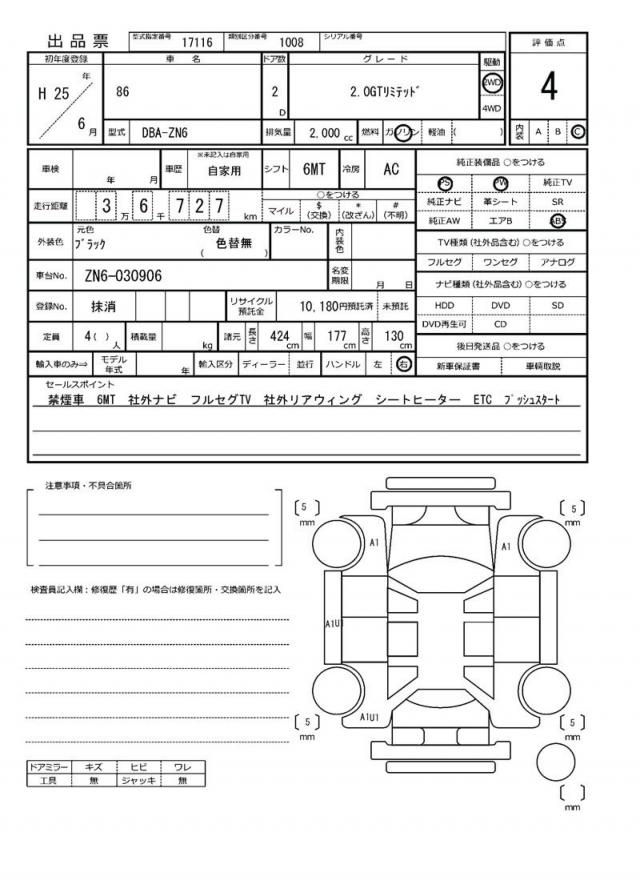 出品票 型式指定番号 17116 類別区分番号 1008 シリアル番号
評価点
初年度登録 車名 ドア数 グレード 駆動
H 25 年 6 月 86 2 D 2.0GTリミテッド 2WD 4WD 4
型式 DBA-ZN6 排気量 2,000 cc 燃料 ガソリン 軽油 ( ) 内装 A B C
車検 年 月 車歴 ※未記入は自家用 自家用 シフト 6MT 冷房 AC
純正装備品 ○をつける
PS PW 純正TV
純正ナビ 革シート SR
純正AW エアB ABS
走行距離 3 万 6 千 7 2 7 km ○をつける
マイル $ (交換) * (改ざん) # (不明)
外装色 元色 ブラック 色替 ( 色替無 ) カラーNo. 内装色
TV種類 (社外品含む) ○をつける
フルセグ ワンセグ アナログ
車台No. ZN6-030906 名変期限 月 日
ナビ種類 (社外品含む) ○をつける
HDD DVD SD
DVD再生可 CD
登録No. 抹消 リサイクル預託金 10,180円預託済 未預託
定員 4 ( ) 人 積載量 kg 諸元 長さ 424 cm 幅 177 cm 高さ 130 cm
後日発送品 ○をつける
新車保証書 車輌取説
輸入車のみ⇒ モデル年式 年 輸入区分 ディーラー 並行 ハンドル 左 右
セールスポイント
禁煙車 6MT 社外ナビ フルセグTV 社外リアウィング シートヒーター ETC プッシュスタート
注意事項・不具合箇所
検査員記入欄：修復歴「有」の場合は修復箇所・交換箇所を記入
〔 5 〕 mm
〔 5 〕 mm
A1
A1
A1U1
A1U1
〔 5 〕 mm
〔 5 〕 mm
〔 〕 mm
ドアミラー キズ ヒビ ワレ
工具 無 ジャッキ 無